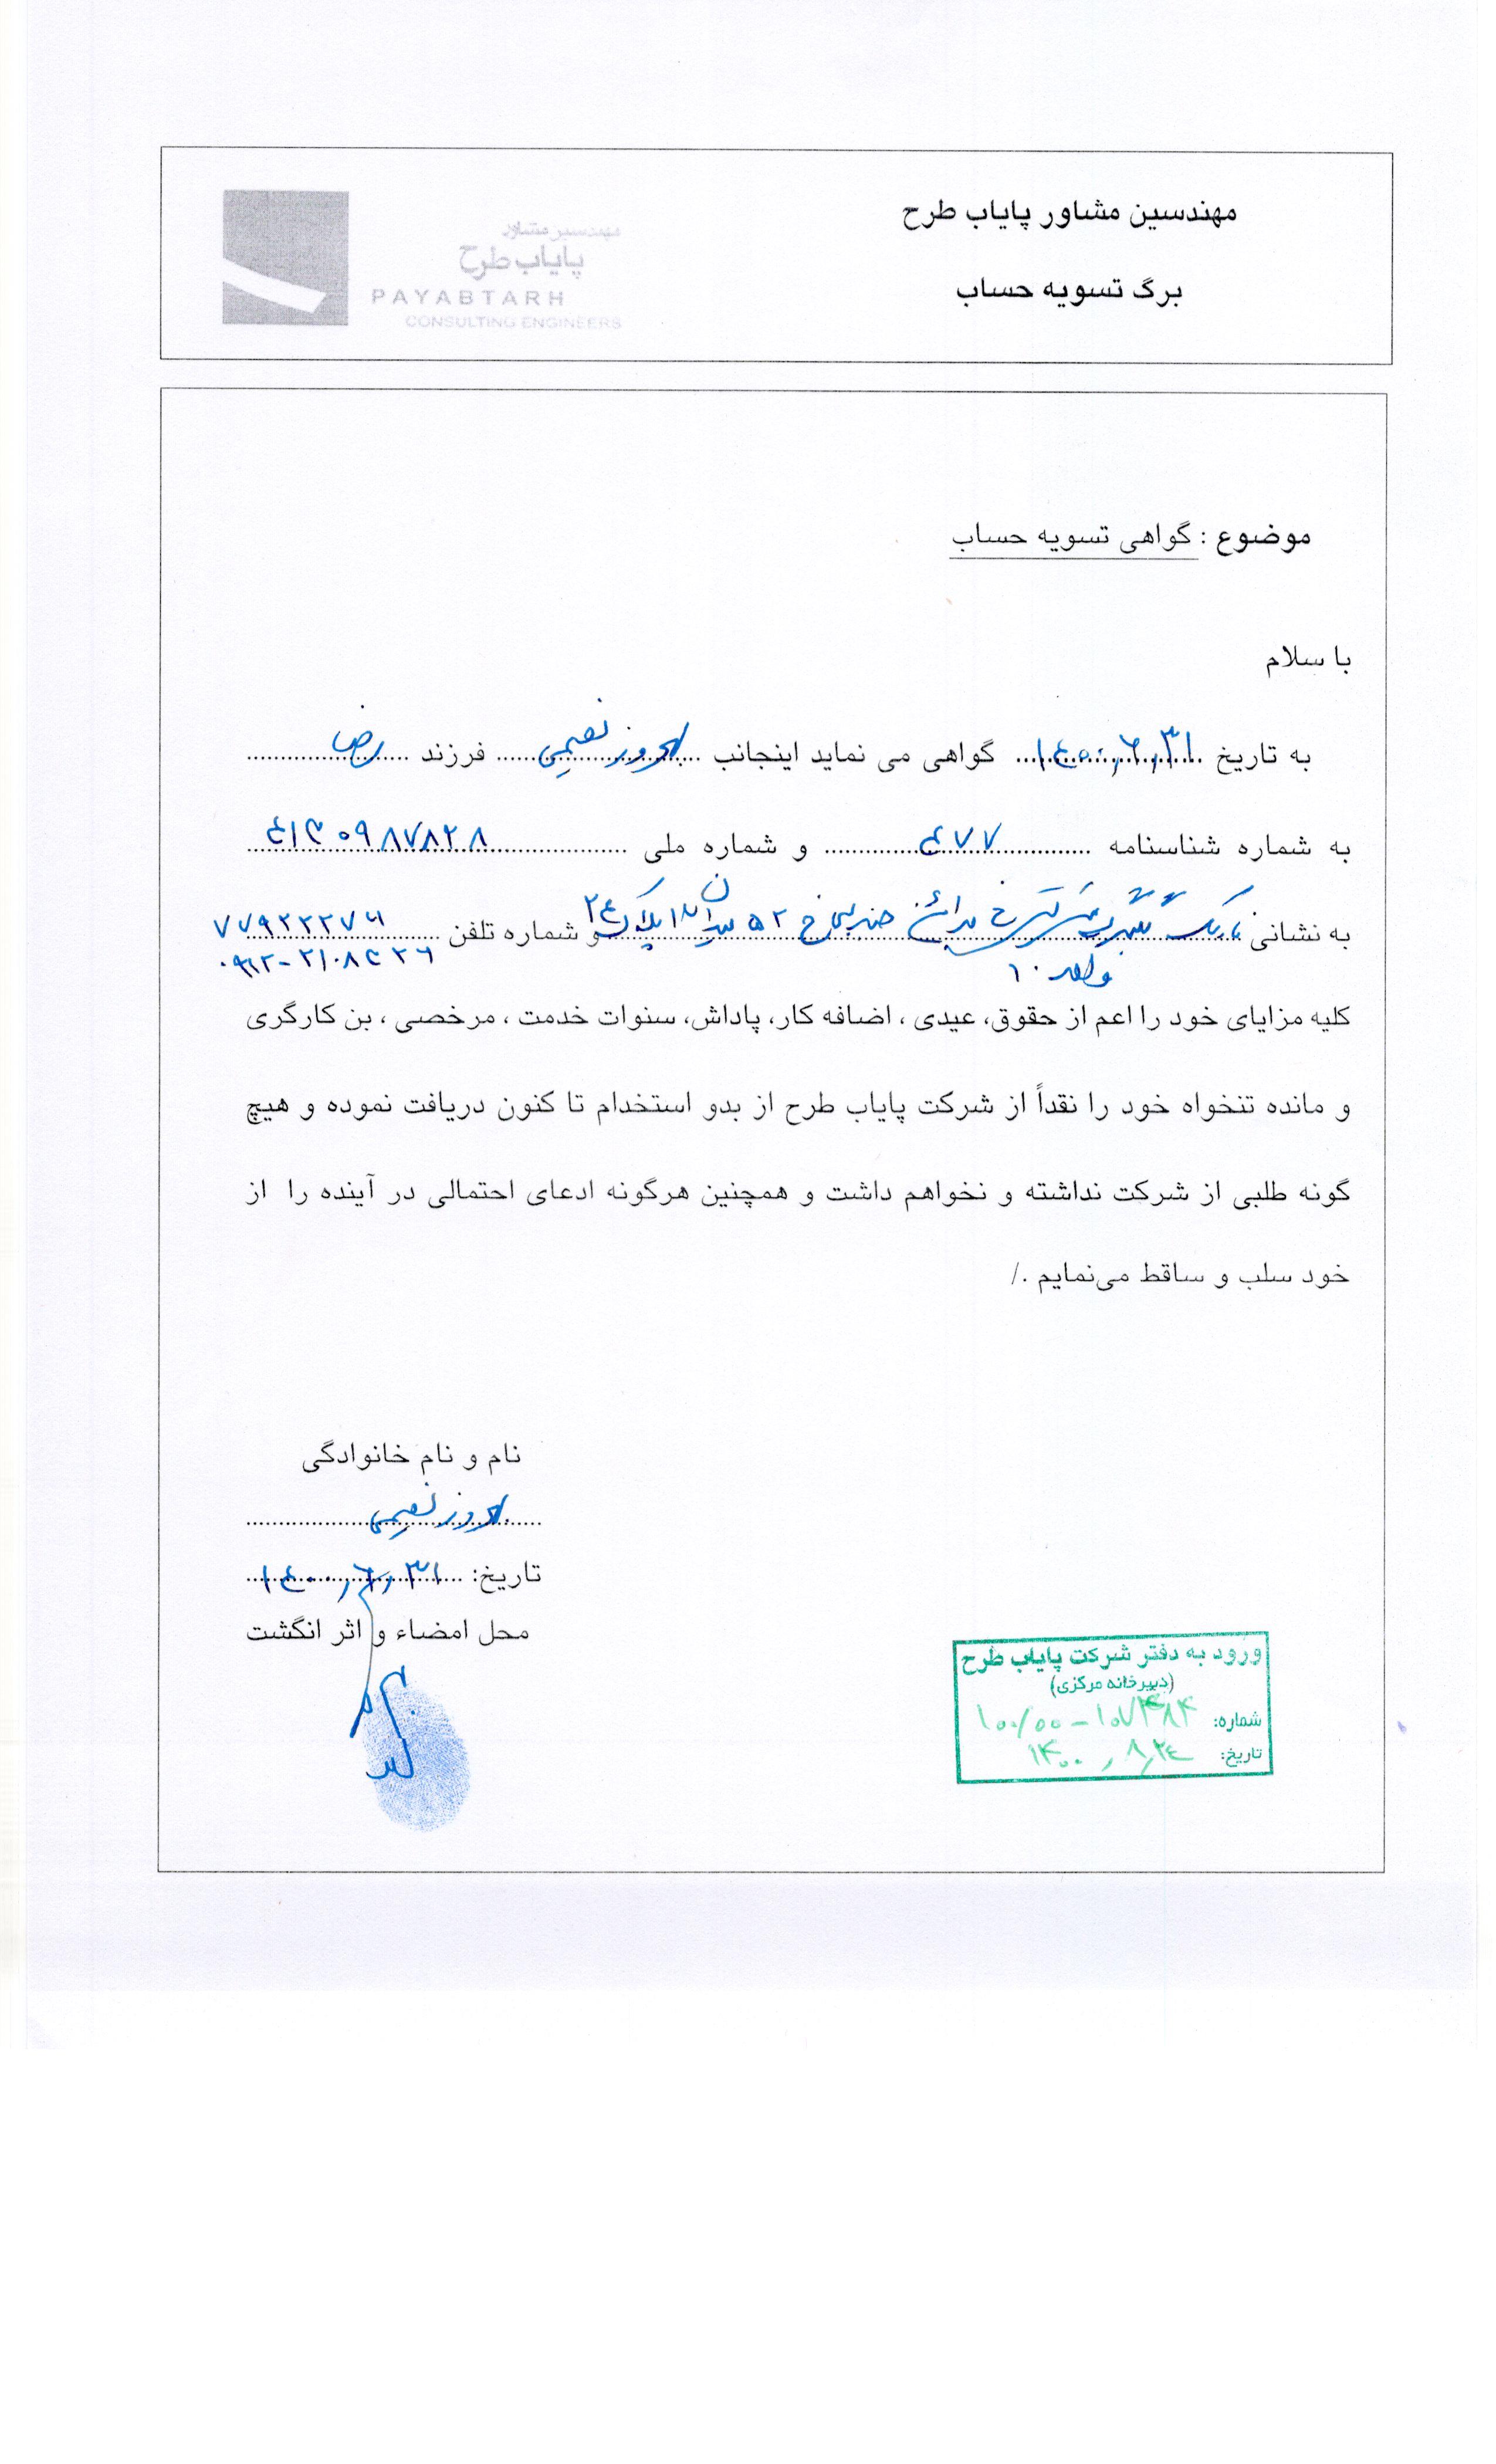 مهندسین مشاور پایاب طرح
برگ تسویه حساب
مهندسین مشاور
پایاب طرح
PAYABTARH
CONSULTING ENGINEERS
موضوع : گواهی تسویه حساب
با سلام
به تاریخ ۱۴۰۰/۶/۳۱ گواهی می نماید اینجانب بهروز نعیمی فرزند رضا
به شماره شناسنامه ۴۷۷ و شماره ملی
به نشانی خ ۵۲ پلاک ۲۴ و شماره تلفن ۷۷۹۲۲۲۷۶
واحد ۱۰
کلیه مزایای خود را اعم از حقوق، عیدی ، اضافه کار، پاداش، سنوات خدمت ، مرخصی ، بن کارگری
و مانده تنخواه خود را نقداً از شرکت پایاب طرح از بدو استخدام تا کنون دریافت نموده و هیچ
گونه طلبی از شرکت نداشته و نخواهم داشت و همچنین هرگونه ادعای احتمالی در آینده را از
خود سلب و ساقط می‌نمایم ./
نام و نام خانوادگی
بهروز نعیمی
تاریخ: ۱۴۰۰/۶/۳۱
محل امضاء و اثر انگشت
ورود به دفتر شرکت پایاب طرح
(دبیرخانه مرکزی)
شماره: ۱۰۰/۰۰ - ۱۰۷۴۸۴
تاریخ: ۱۴۰۰/۸/۲۴